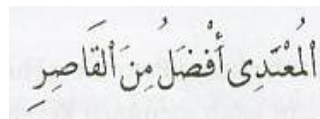 اَلْمُعْتَدِى أَفْضَلُ مِنَ ٱلْقَاصِرِ